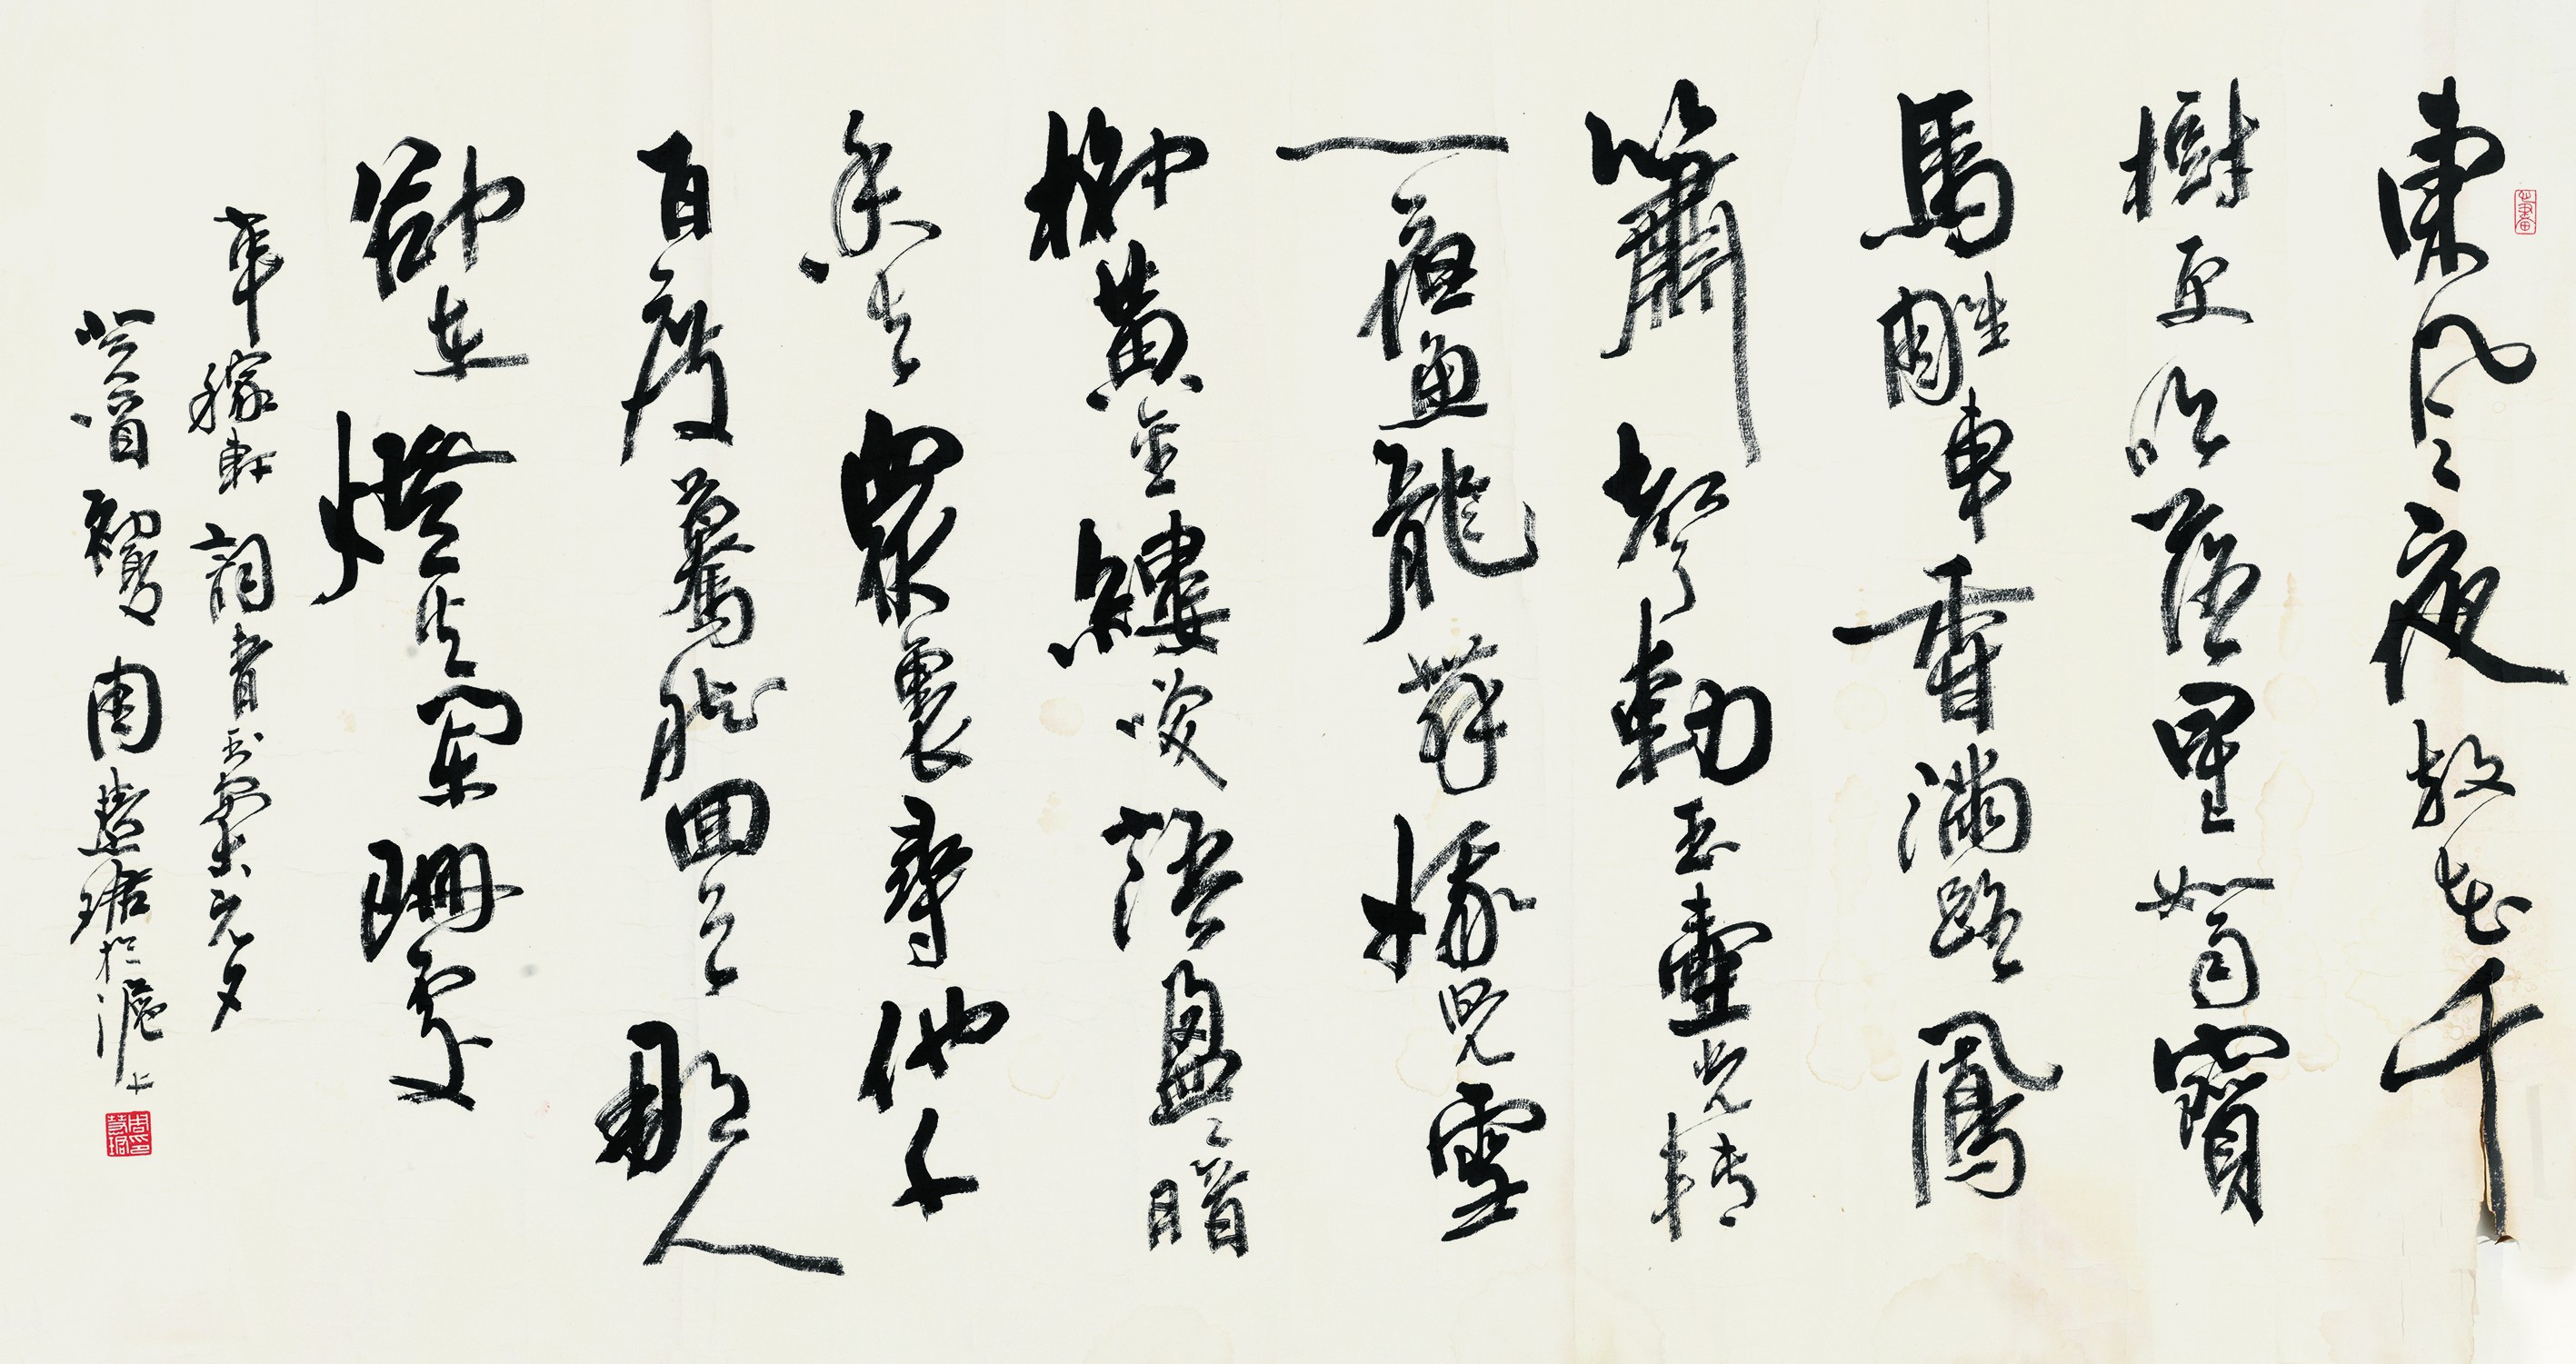 東風夜放花千
樹更吹落星如雨寶
馬雕車香滿路鳳
簫聲動玉壺光轉
一夜魚龍舞蛾兒雪
柳黃金縷笑語盈盈暗
香去眾裏尋他千
百度驀然回首那人
卻在燈火闌珊處
辛稼軒詞青玉案元夕
癸酉初夏周慧珺於滬上
周印慧珺